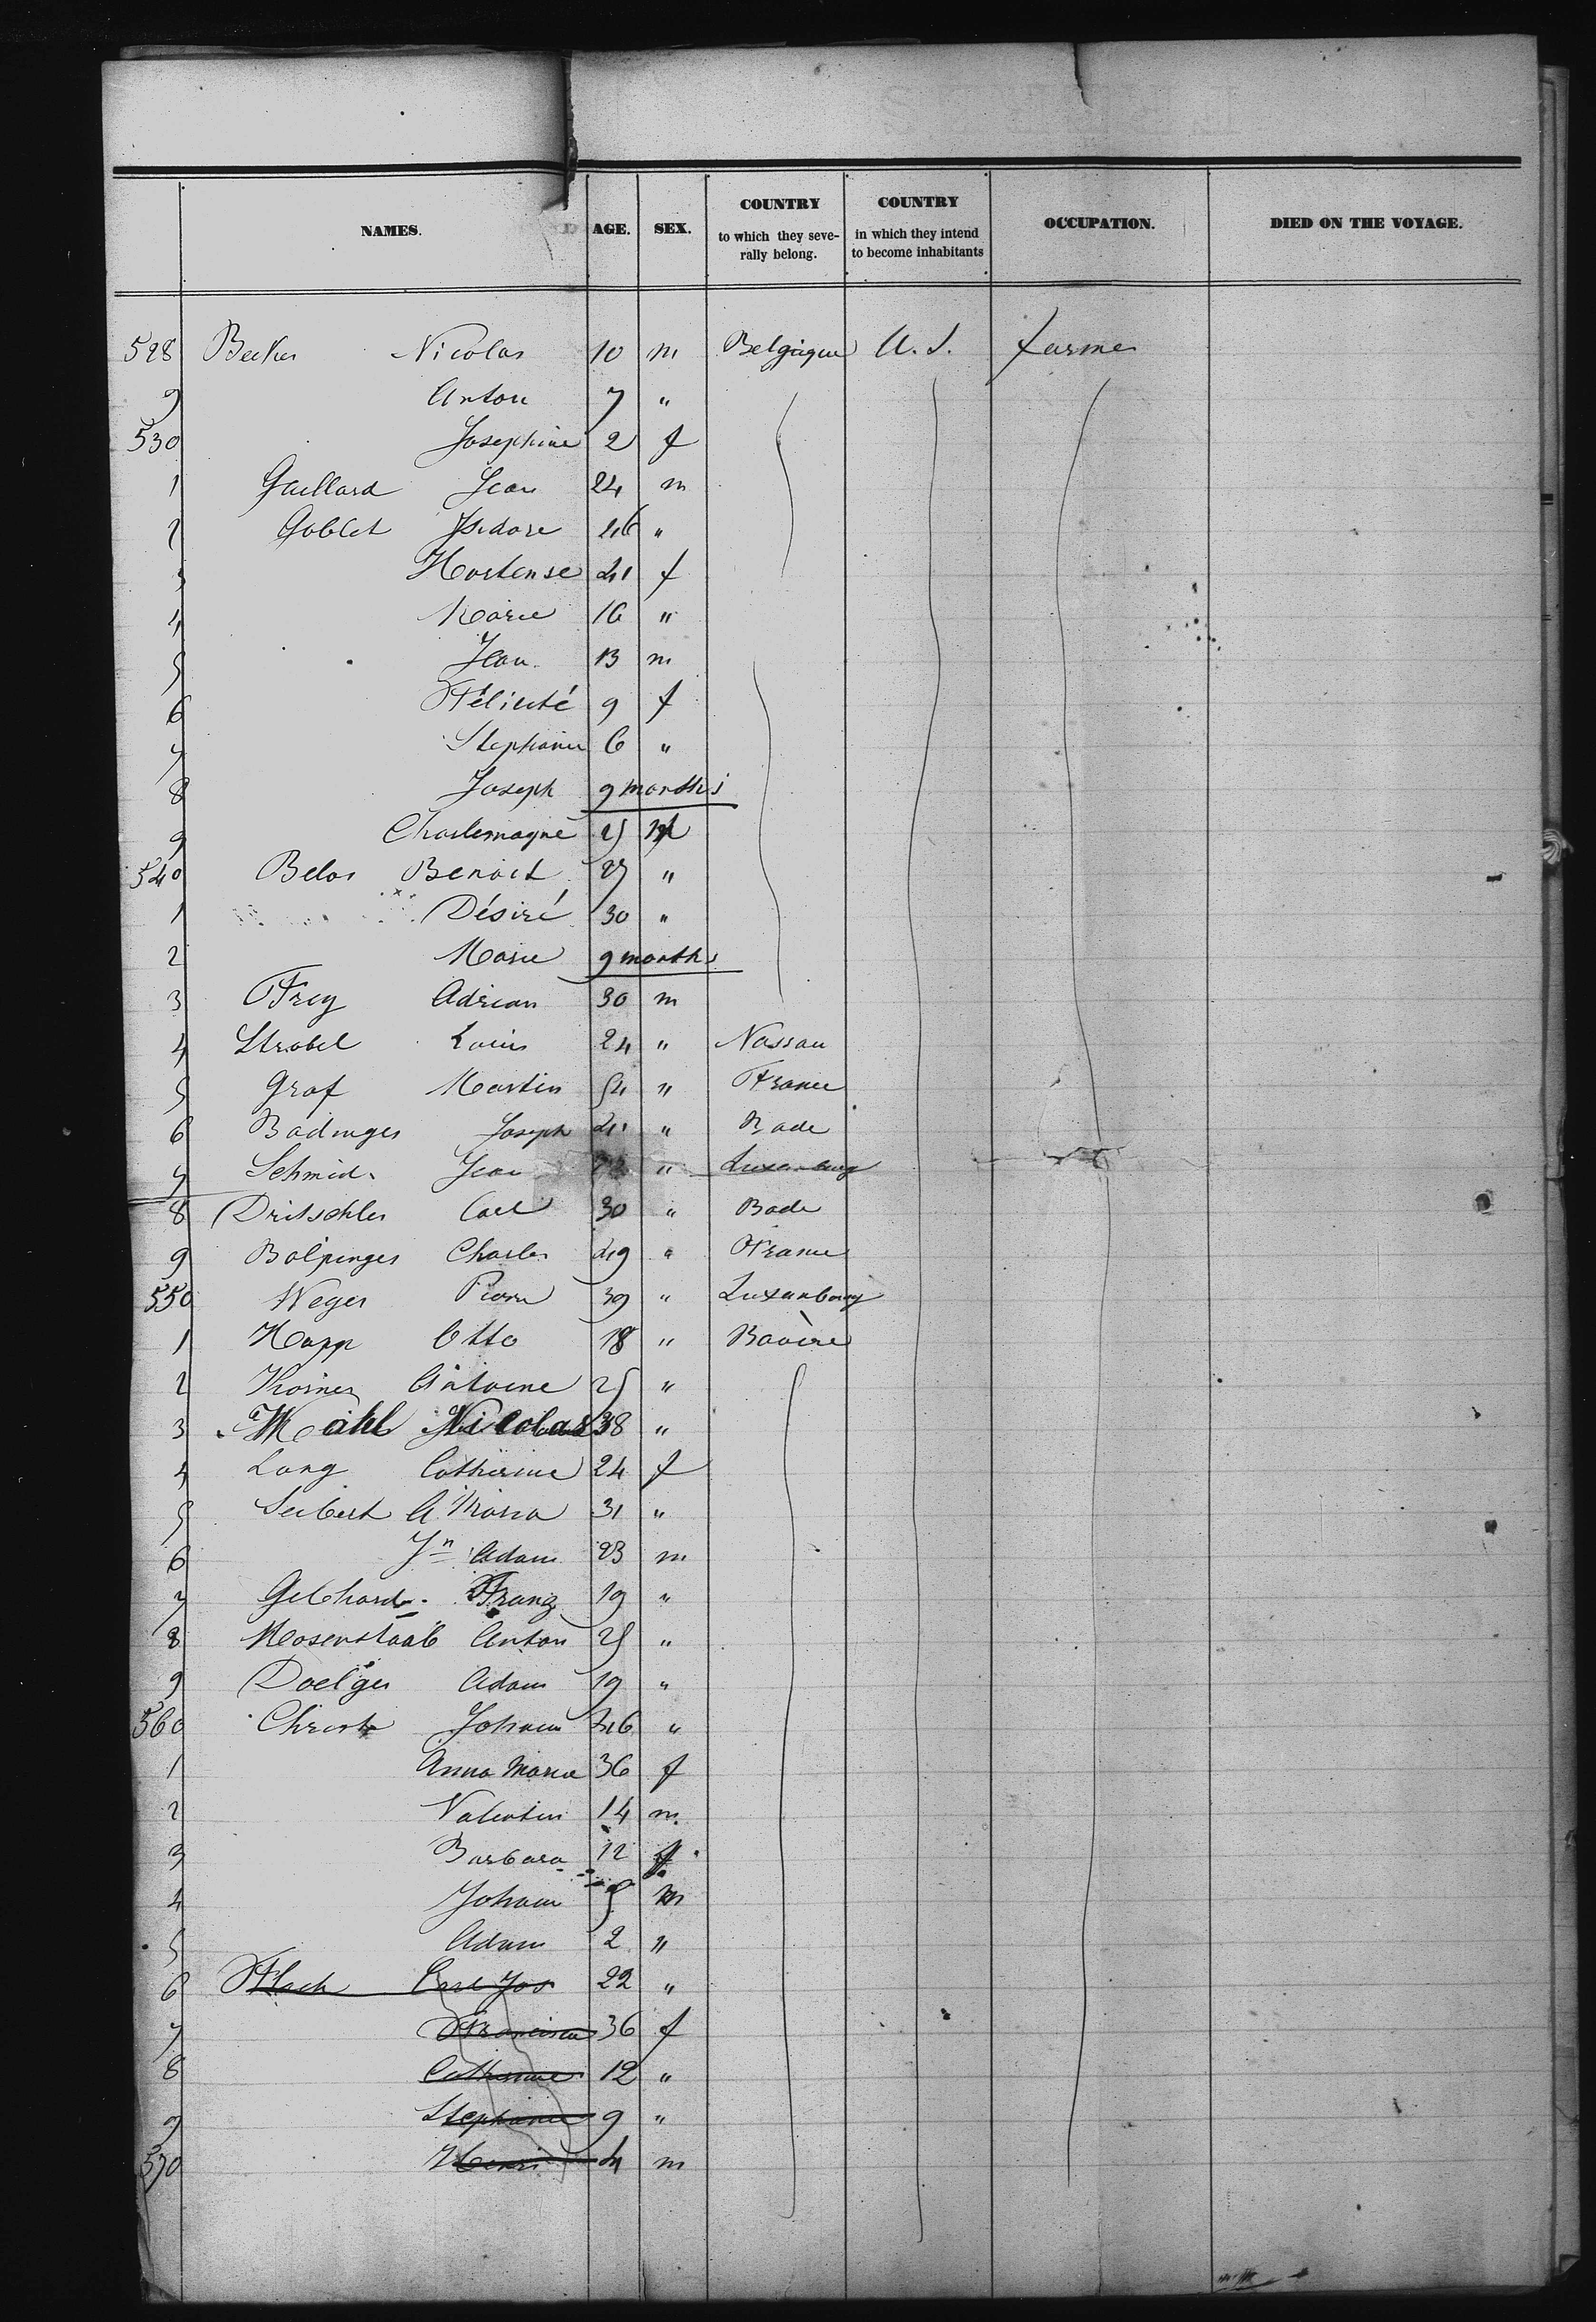 NAMES. AGE. SEX. COUNTRY to which they seve- rally belong. COUNTRY in which they intend to become inhabitants OCCUPATION. DIED ON THE VOYAGE.
528 Becker Nicolas 10 m Belgique U.S. farmer
9 Anton 7 "
530 Josephine 2 f
1 Gaillard Jean 24 m
2 Goblet Isidore 46 "
3 Hortense 41 f
4 Marie 16 "
5 Jean 13 m
6 Félicité 9 f
7 Stephanie 6 "
8 Joseph 9 months
9 Charlemagne 25 m
540 Belos Benoit 27 "
1 Désiré 30 "
2 Marie 9 months
3 Frey Adrian 30 m
4 Strobel Louis 24 " Nassau
5 Graf Martin 54 " France
6 Badinger Joseph 41 " Bade
7 Schmid Jean " Luxemburg
8 Dritschler Carl 30 " Bade
9 Bolpinger Charles 49 " France
550 Weger Pierre 39 " Luxemburg
1 Happ Otto 18 " Bavière
2 Körner Antoine 25 "
3 Mahl Nicolas 38 "
4 Lang Catherine 24 f
5 Seibert A. Maria 31 "
6 Jn Adam 23 m
7 Gebhard Franz 19 "
8 Rosenstaab Anton 25 "
9 Doelger Adam 19 "
560 Christ Johann 46 "
1 Anna Maria 36 f
2 Valentin 14 m
3 Barbara 12 f
4 Johann 5 m
5 Adam 2 "
6 Flach Carl Jos 22 "
7 Francisca 36 f
8 Catherine 12 "
9 Stephanie 9 "
570 Henri 4 m